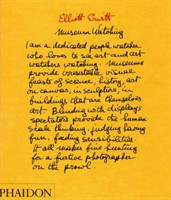 Elliott Erwitt
Museum Watching
I am a dedicated people watcher
who loves to see art and art
watchers watching. Museums
provide irresistible visual
feasts of science, history, art
on canvas, in sculpture, in
buildings that are themselves
art. Blending with displays
spectators provide the human
scale thinking, judging, having
fun, finding sensibilities
It all makes fine hunting
for a furtive photographer
on the prowl.
PHAIDON